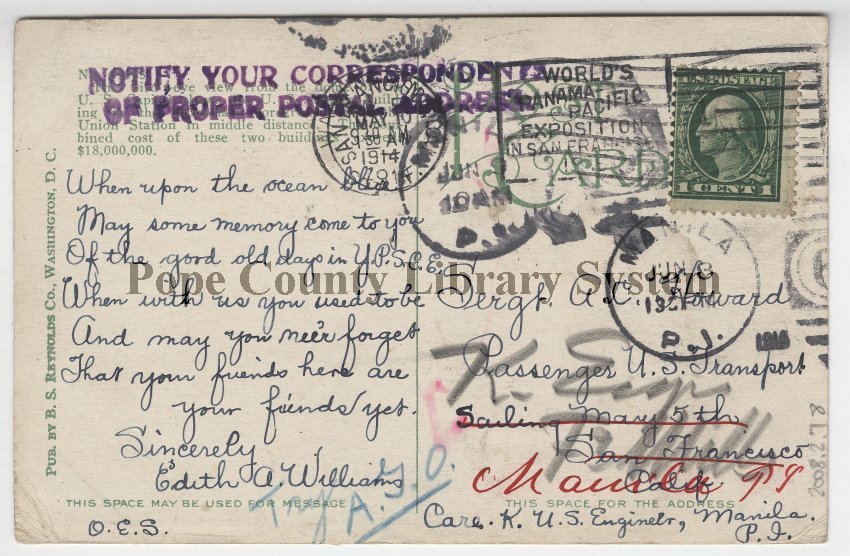 NOTIFY YOUR CORRESPONDENTS
OF PROPER POSTAL ADDRESS
eye view from the
Union Station in middle distance
bined cost of these two
$18,000,000.
PUB. BY B. S. REYNOLDS CO., WASHINGTON, D. C.
When upon the ocean blue
May some memory come to you
Of the good old days in Y.P.S.C.E.
When with us you used to be
And may you ne'er forget
That your friends here are
your friends yet.
Sincerely
Edith A. Williams
THIS SPACE MAY BE USED FOR MESSAGE
O.E.S.
Try A.G.O.
MAY 10
1914
WORLD'S
PANAMA
PACIFIC
EXPOSITION
IN SAN FRANCISCO
CARD
U.S. POSTAGE
1 CENT 1
JUN 8
10 AM
P.I.
MANILA
JUN 8
P.I.
Sergt. A.C. Howard
Passenger U.S. Transport
Sailing May 5th
San Francisco
Calif
K. Eng.
Manila P I
THIS SPACE FOR THE ADDRESS
Care. K. U.S. Engineer, Manila.
P.I.
2008.2.78
Pope County Library System